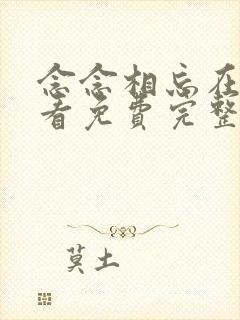 念念相忘在
看免费完整
莫土